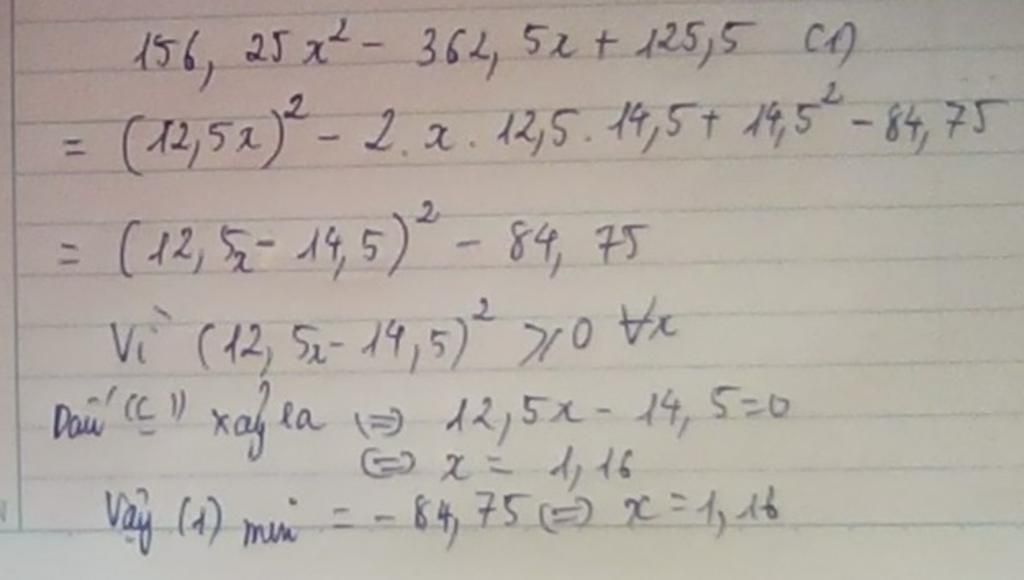 156,25x² - 362,5x + 125,5 (1)
= (12,5x)² - 2.x.12,5.14,5 + 14,5² - 84,75
= (12,5x - 14,5)² - 84,75
Vì (12,5x - 14,5)² ⩾ 0 ∀x
Dấu "=" xảy ra ⇔ 12,5x - 14,5 = 0
⇔ x = 1,16
Vậy (1) min = - 84,75 ⇔ x = 1,16